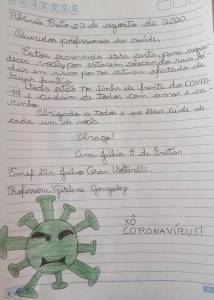 Ribeirão Preto, 03 de agosto de 2020.
Queridos profissionais da saúde,
Estou escrevendo essa carta para agra-
decer vocês, por estarem colocando suas vi-
das em risco por nós estarem afastados de
suas família.
Vocês estão na linha de frente do COVID-
19 e cuidam de todos com amor e ca-
rinho.
Obrigada a todos e que Deus cuide de
cada um de vocês.
Abraço!
Ana Júlia F. de Freitas
Emef Dr. Júlio Cesar Voltarelli
Professora Gislene Gonzalez
XÔ
CORONAVÍRUS!